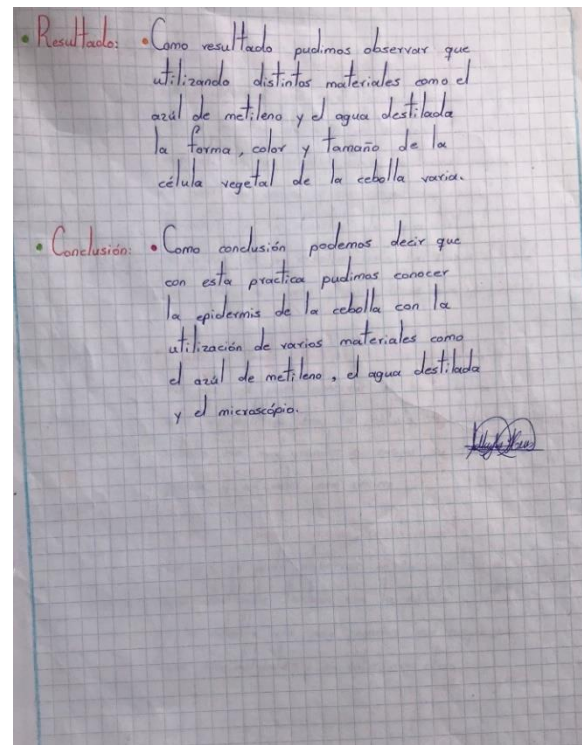 • Resultado: • Como resultado pudimos observar que
utilizando distintos materiales como el
azúl de metileno y el agua destilada
la forma, color y tamaño de la
célula vegetal de la cebolla varia.
• Conclusión: • Como conclusión podemos decir que
con esta practica pudimos conocer
la epidermis de la cebolla con la
utilización de varios materiales como
el azúl de metileno, el agua destilada
y el microscópio.